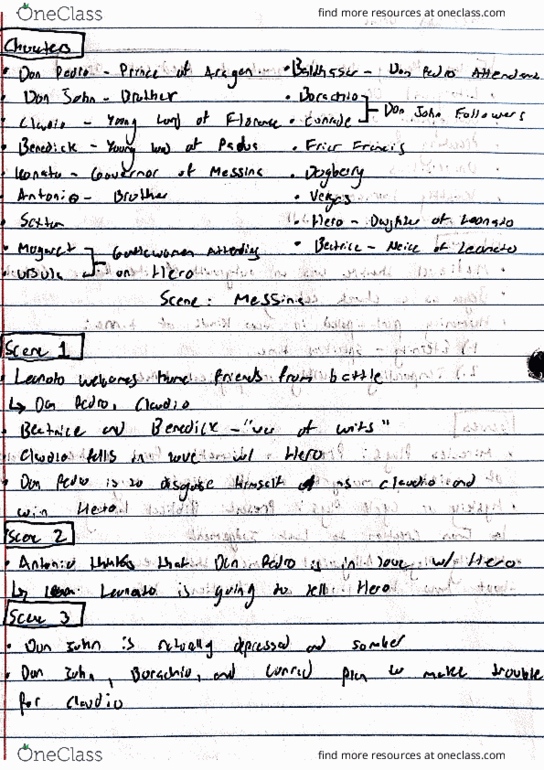 OneClass find more resources at oneclass.com
Charcters
• Don Pedro - Prince of Aragon
• Don John - Brother
• Claudio - Young Lord of Florence
• Benedick - Young Lord of Padua
• Leonato - Governor of Messina
• Antonio - Brother
• Sexton
• Margaret
• Ursula
Gentlewomen Attending on Hero
• Balthasar - Don Pedro Attendant
• Borachio
• Conrade
Don John Followers
• Friar Francis
• Dogberry
• Verges
• Hero - Daughter of Leonato
• Beatrice - Neice of Leonato
Scene: Messina
Scene 1
• Leonato welcomes home friends from battle
↳ Don Pedro, Claudio
• Beatrice and Benedick - "war of wits"
• Claudio falls in love w/ Hero
• Don Pedro is to disguise himself as Claudio and
win Hero
Scene 2
• Antonio thinks that Don Pedro is in love w/ Hero
↳ Leonato is going to tell Hero
Scene 3
• Don John is actually depressed and somber
• Don John, Borachio, and Conrad plan to make trouble
for Claudio
OneClass find more resources at oneclass.com